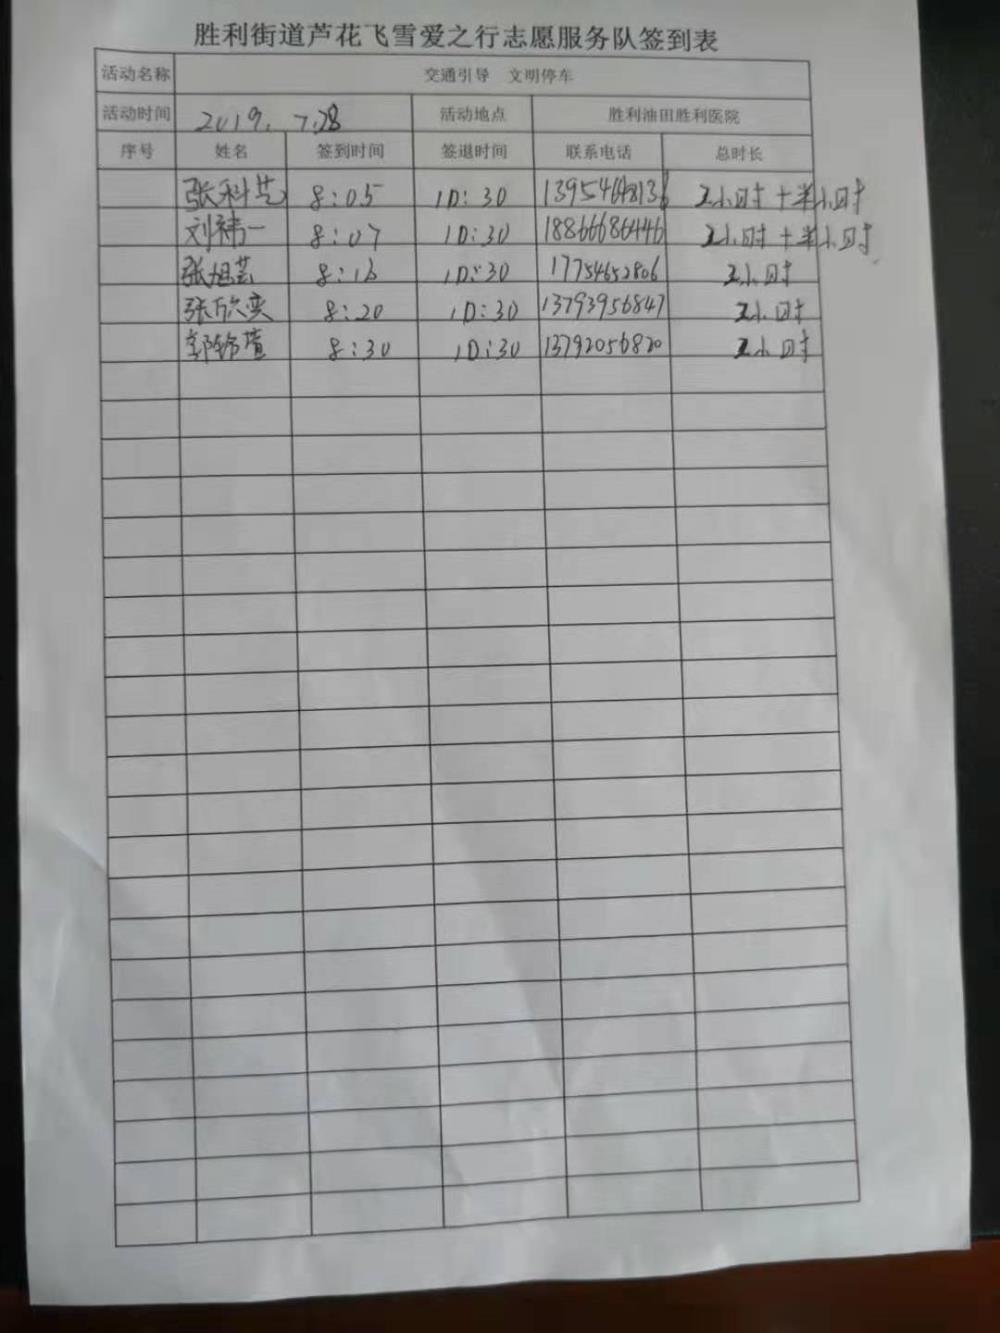 胜利街道芦花飞雪爱之行志愿服务队签到表
活动名称 交通引导 文明停车
活动时间 2019.7.28 活动地点 胜利油田胜利医院
序号 姓名 签到时间 签退时间 联系电话 总时长
张科艺 8:05 10:30 13954648136 2小时+半小时
刘祎一 8:07 10:30 18866686446 2小时+半小时
张旭芸 8:16 10:30 17754652806 2小时
张欣奕 8:20 10:30 13793956847 2小时
郭锦萱 8:30 10:30 13792056820 2小时